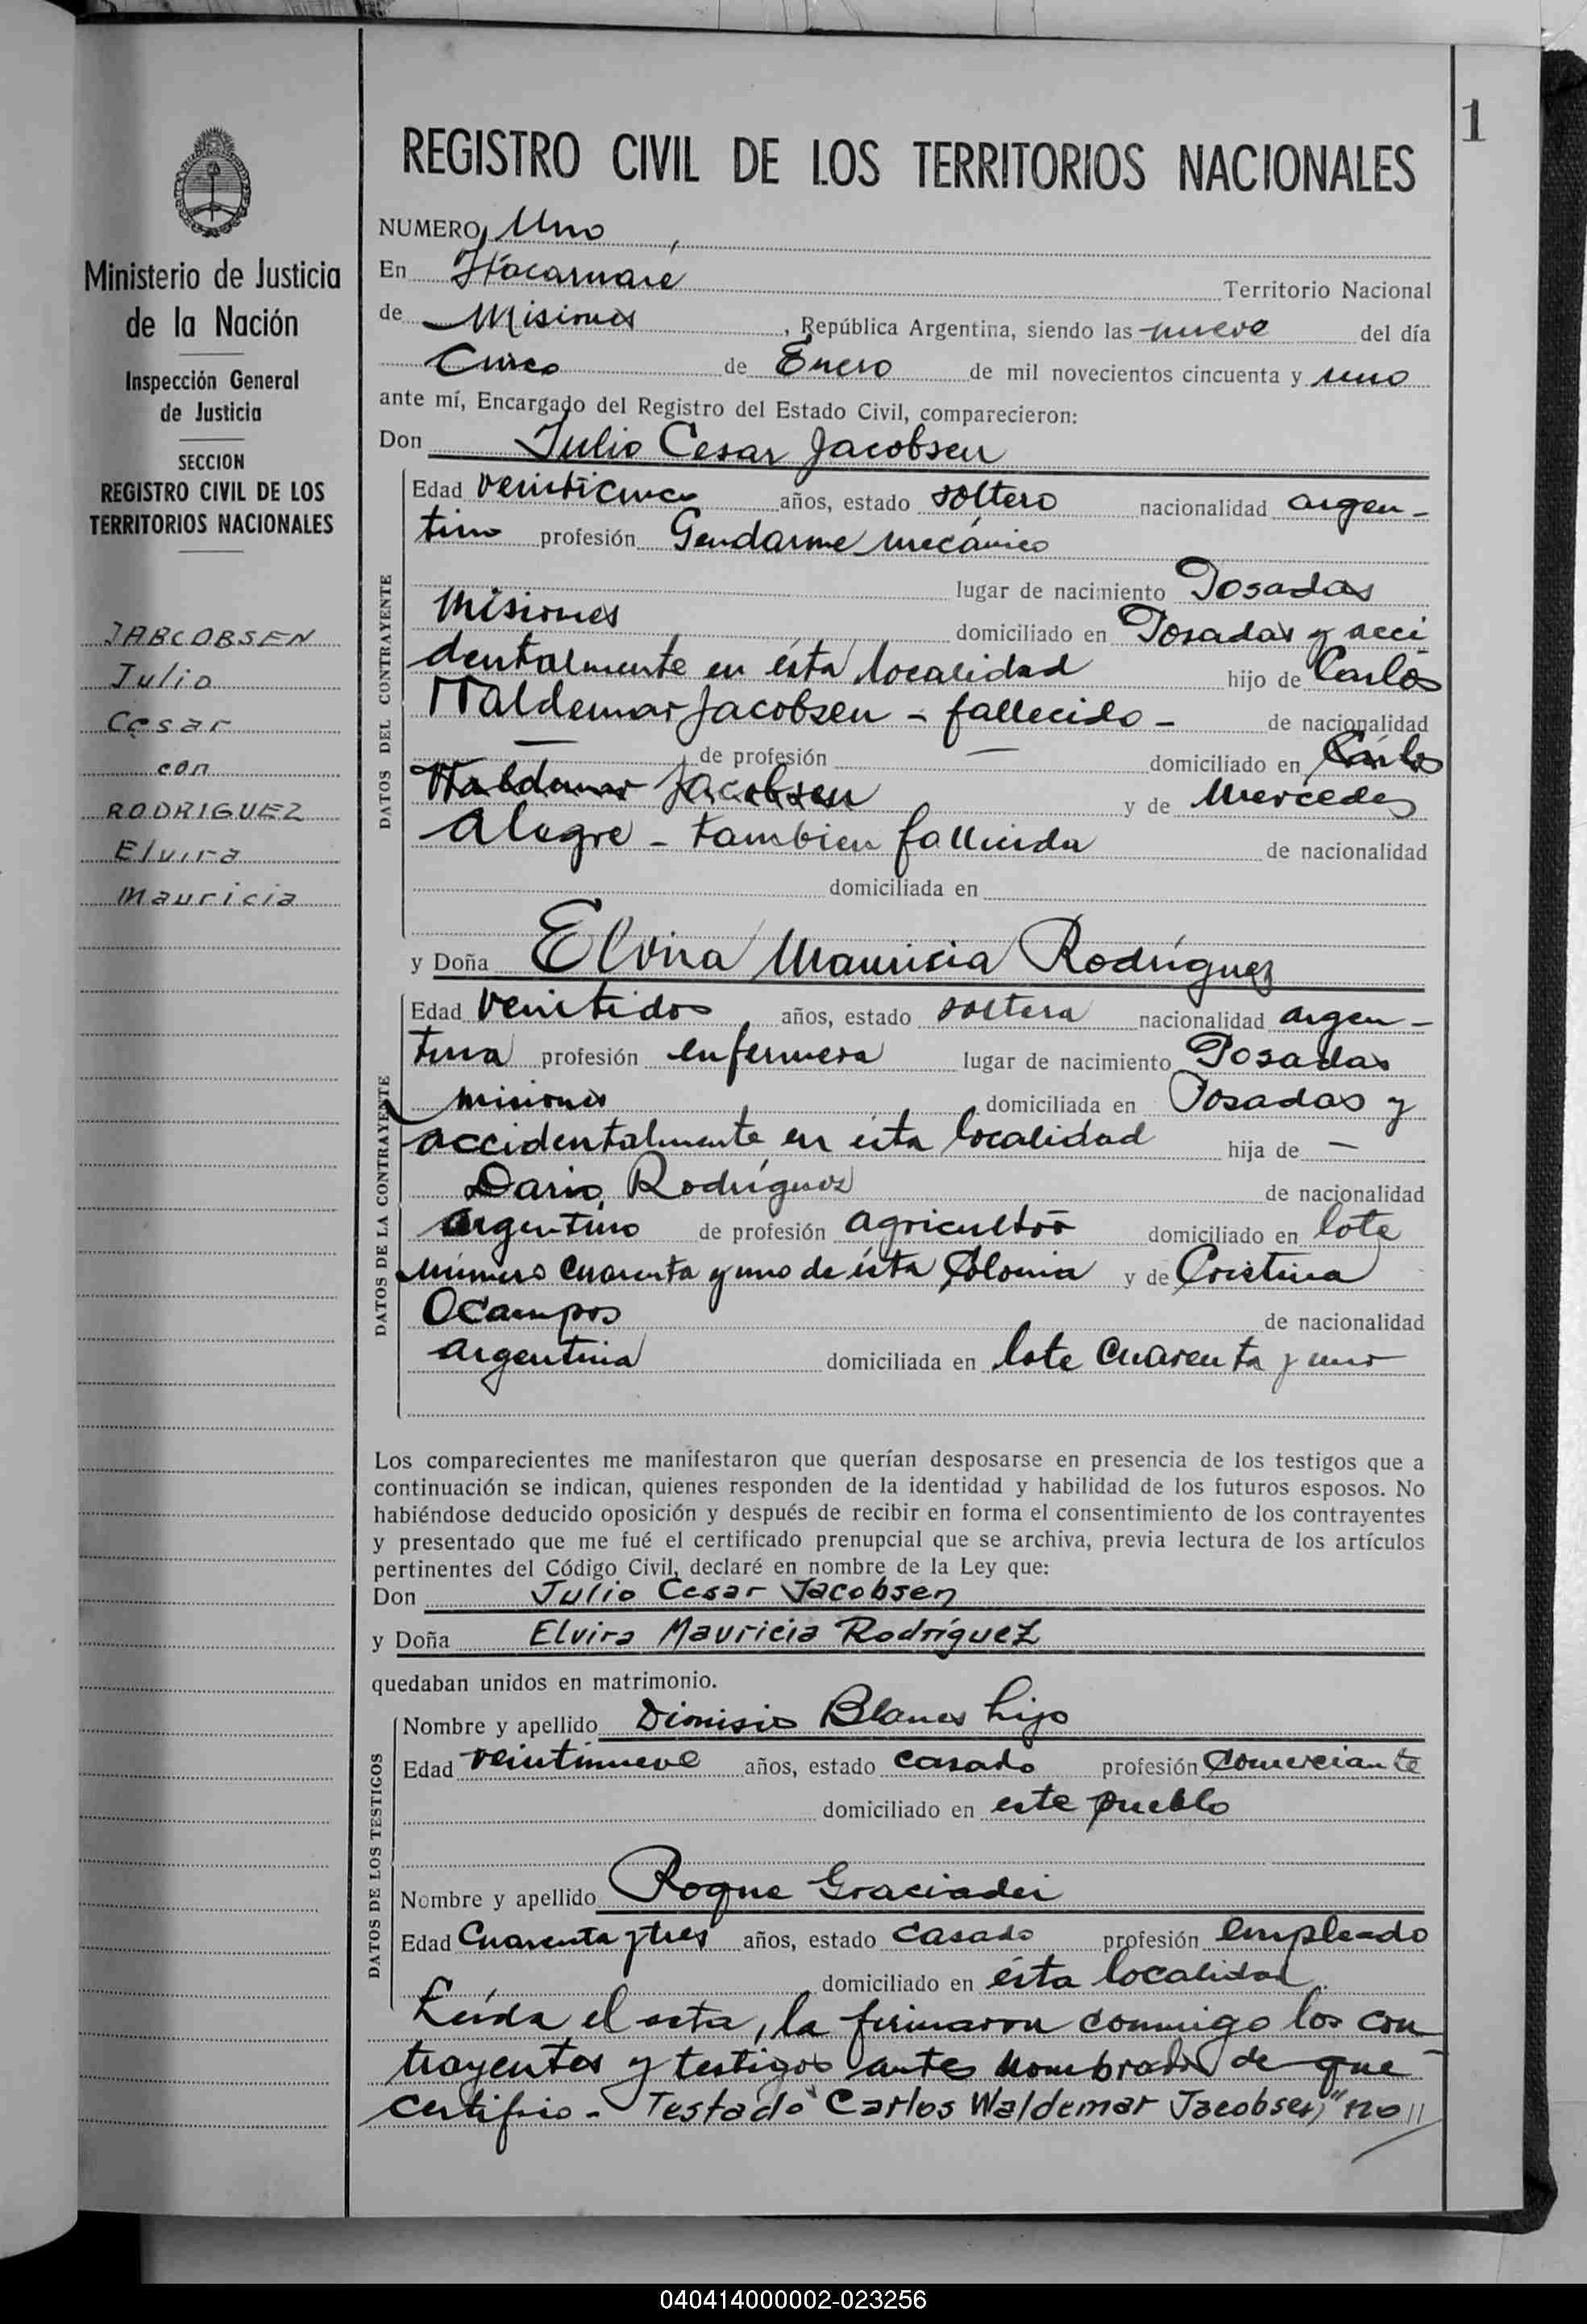 1
REGISTRO CIVIL DE LOS TERRITORIOS NACIONALES
Ministerio de Justicia
de la Nación
Inspección General
de Justicia
SECCION
REGISTRO CIVIL DE LOS
TERRITORIOS NACIONALES
JABCOBSEN
Julio
Cesar
con
RODRIGUEZ
Elvira
Mauricia
NUMERO Uno
En Itacaruaré Territorio Nacional
de Misiones, República Argentina, siendo las nueve del día
Cinco de Enero de mil novecientos cincuenta y uno
ante mí, Encargado del Registro del Estado Civil, comparecieron:
Don Julio Cesar Jacobsen
DATOS DEL CONTRAYENTE
Edad veinticinco años, estado soltero nacionalidad argen-
tino profesión Gendarme mecánico
lugar de nacimiento Posadas
Misiones domiciliado en Posadas y acci
dentalmente en ésta localidad hijo de Carlos
Waldemar Jacobsen - fallecido - de nacionalidad
— de profesión — domiciliado en Carlos
Waldemar Jacobsen y de Mercedes
Alegre - tambien fallecida de nacionalidad
domiciliada en
y Doña Elvira Mauricia Rodríguez
DATOS DE LA CONTRAYENTE
Edad veintidos años, estado soltera nacionalidad argen-
tina profesión enfermera lugar de nacimiento Posadas
Misiones domiciliada en Posadas y
accidentalmente en ésta localidad hija de —
Dario Rodríguez de nacionalidad
argentino de profesión agricultor domiciliado en lote
número cuarenta y uno de ésta Colonia y de Cristina
Ocampos de nacionalidad
argentina domiciliada en lote cuarenta y uno
Los comparecientes me manifestaron que querían desposarse en presencia de los testigos que a
continuación se indican, quienes responden de la identidad y habilidad de los futuros esposos. No
habiéndose deducido oposición y después de recibir en forma el consentimiento de los contrayentes
y presentado que me fué el certificado prenupcial que se archiva, previa lectura de los artículos
pertinentes del Código Civil, declaré en nombre de la Ley que:
Don Julio Cesar Jacobsen
y Doña Elvira Mauricia Rodríguez
quedaban unidos en matrimonio.
DATOS DE LOS TESTIGOS
Nombre y apellido Dionisio Blanes hijo
Edad veintinueve años, estado casado profesión comerciante
domiciliado en este pueblo
Nombre y apellido Roque Graciadei
Edad Cuarenta y tres años, estado casado profesión empleado
domiciliado en ésta localidad.
Leída el acta, la firmaron conmigo los con-
trayentes y testigos antes nombrados de que
certifico - Testado "Carlos Waldemar Jacobsen," no
040414000002-023256